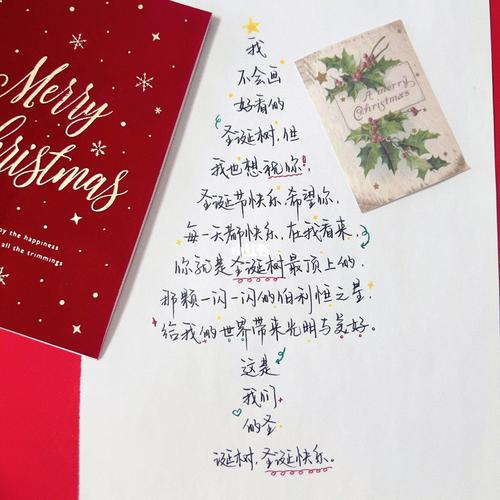 Merry
Christmas
y the happiness
all the trimmings
A merry
Christmas
我
不会画
好看的
圣诞树,但
我也想祝你!
圣诞节快乐,希望你,
每一天都快乐,在我看来,
你就是圣诞树最顶上的,
那颗一闪一闪的伯利恒之星,
给我的世界带来光明与美好。
这是
我们
的圣
诞树,圣诞快乐。